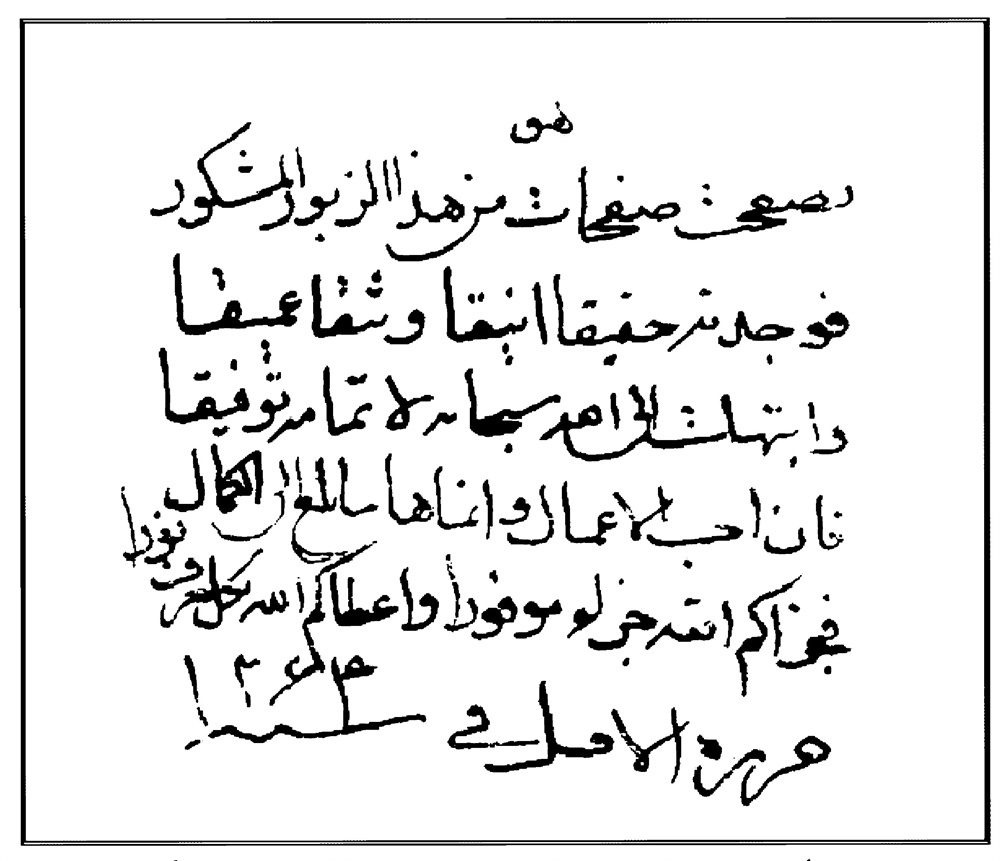 هو
تصفحت صفحات من هذا الزبور المشكور
فوجدته حقيقا انيقا وثيقا عميقا
وابتهلت الى الله سبحانه لاتمامه توفيقا
فان احب الاعمال و اتمها ما بلغ الى الكمال
فجزاكم الله جزاء موفورا واعطاكم الله بكل حرف نورا
حرره الاقل في سنة